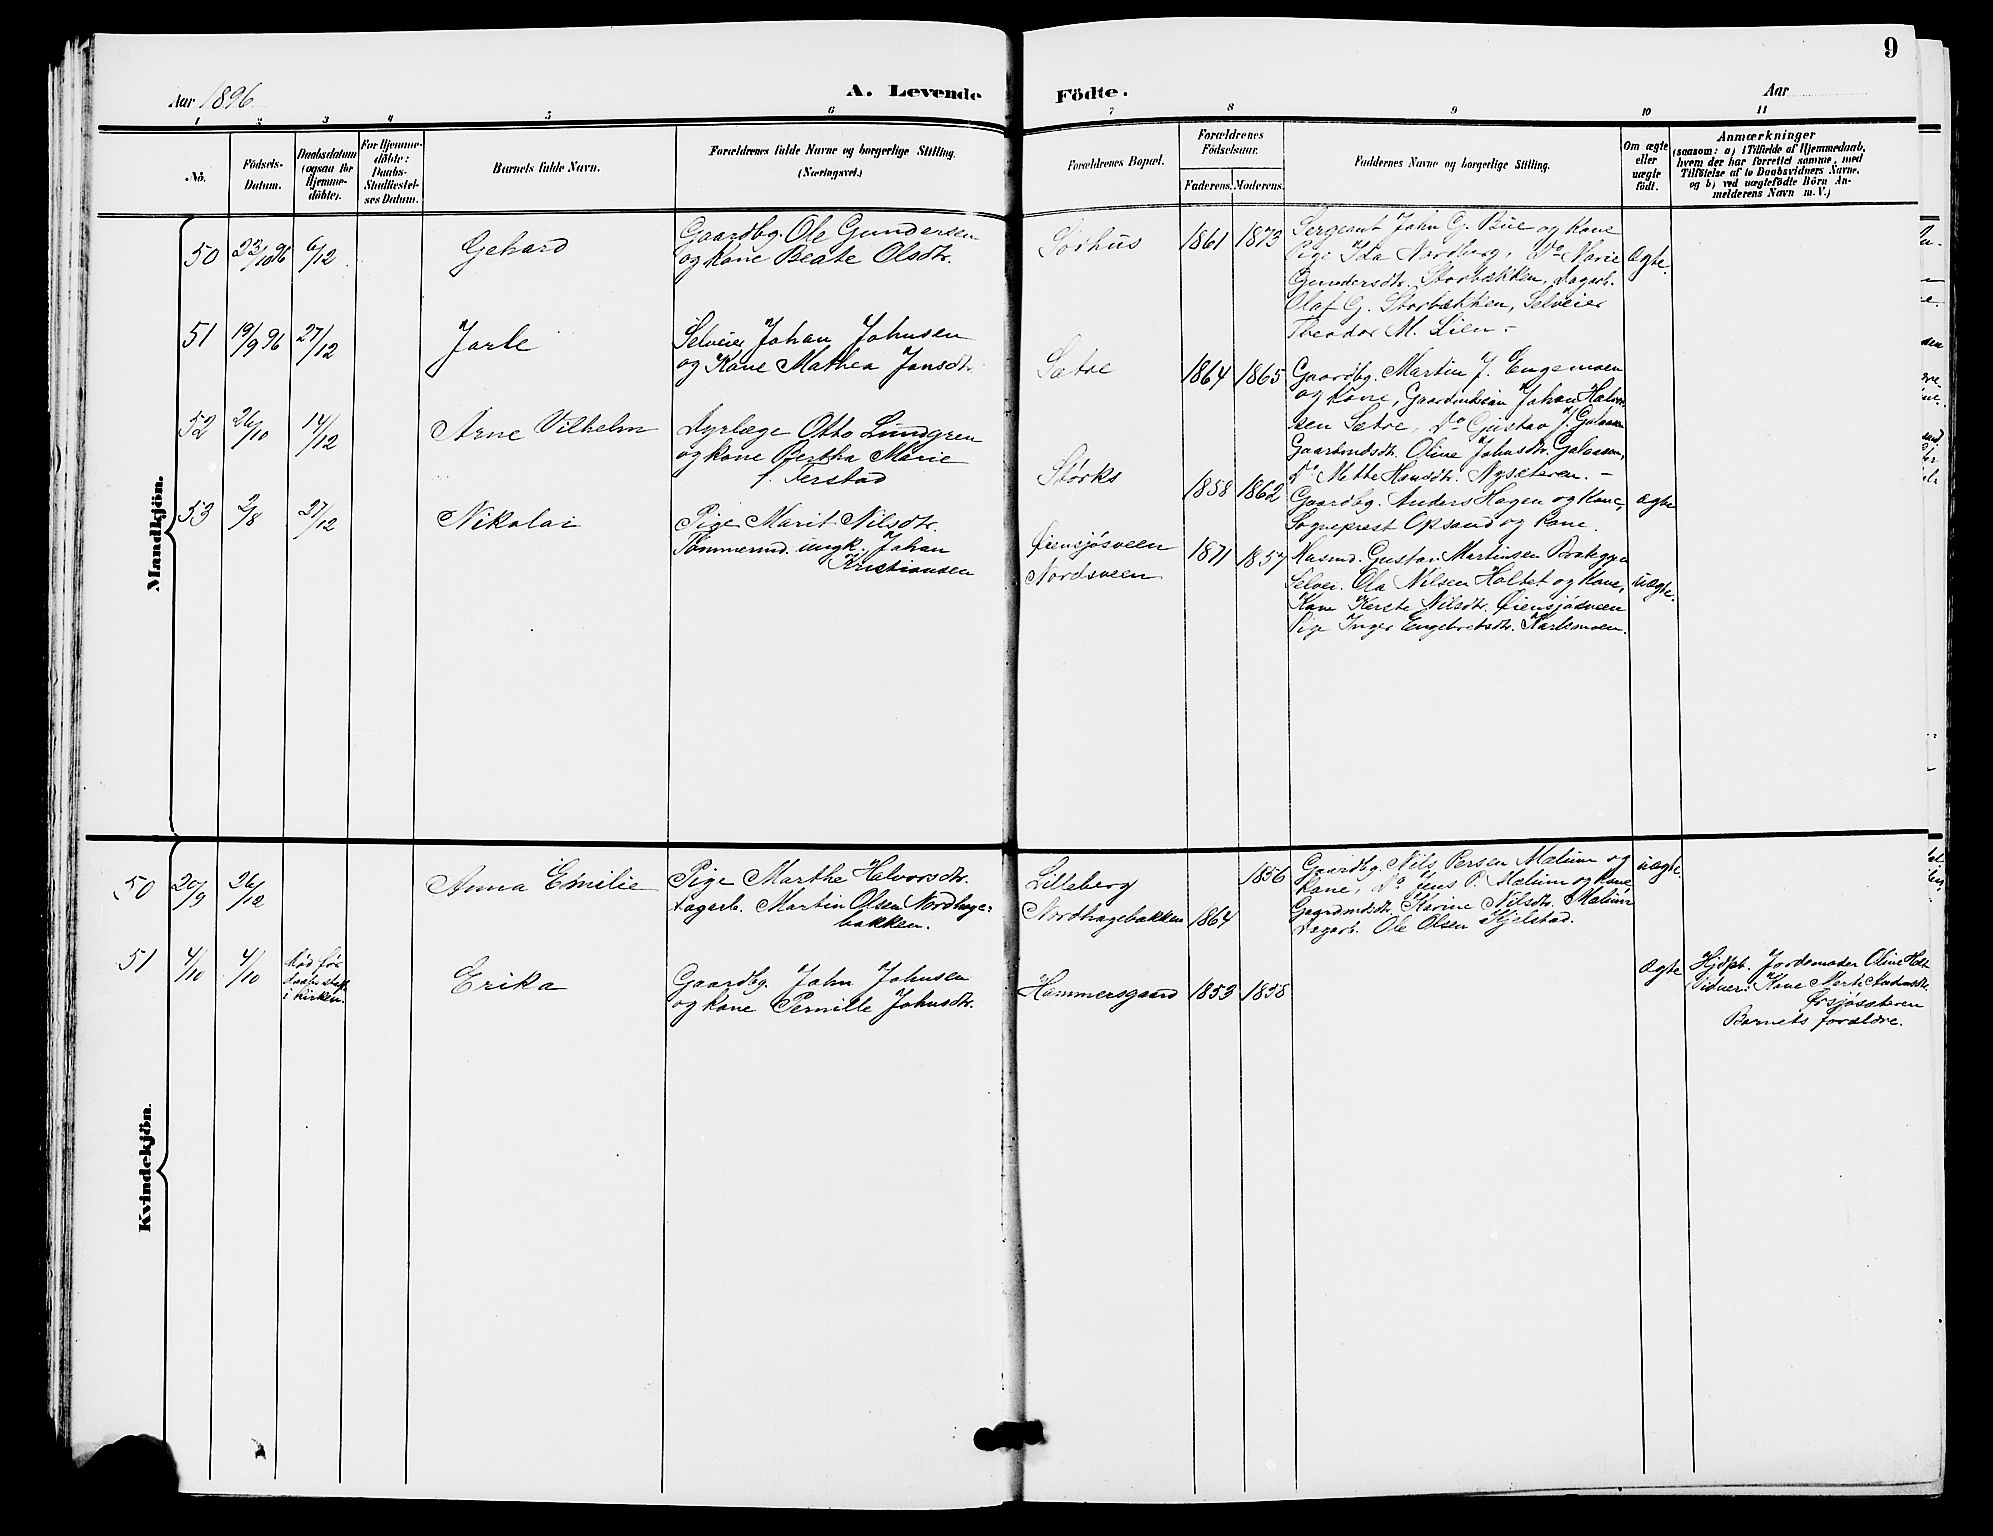 9
Aar 1896
A. Levende Födte.
Aar
1 2 3 4 5 6 7 8 9 10 11
No.
Födsels-
Datum.
Daabsdatum
(ogsaa for
Hjemme-
döbte).
For Hjemme-
döbte:
Daabs-
Stadfæstel-
ses Datum.
Barnets fulde Navn.
Forældrenes fulde Navne og borgerlige Stilling.
(Næringsvei.)
Forældrenes Bopæl.
Forældrenes
Födselsaar.
Faderens. Moderens.
Faddernes Navne og borgerlige Stilling.
Om ægte
eller
uægte
födt.
Anmærkninger
(saasom: a) i Tilfælde af Hjemmedaab,
hvem der har forrettet samme, med
Tilföielse af to Daabsvidners Navne,
og b) ved uægtefödte Börn An-
melderens Navn m. V.)
Mandkjön.
50 23/10 96 6/12 Gehard
Gaardbg. Ole Gundersen
og Kone Beate Olsdtr.
Sørhus 1861 1873
Sergeant John G. Bue og Kone
Pige Ida Nordberg, Do Marie
Gundersdtr. Storbækken, Dagarb.
Olaf G. Storbækken, Selveier
Theodor M. Lien -
ægte.
51 19/9 96 27/12 Jarle
Selveier Johan Johnsen
og Kone Mathea Jonsdtr.
Sætre 1864 1865
Gaardbg. Martin J. Engemoen
og Kone, Gaardmdssøn Johan Halvor-
sen Sætre, Do Gustav J. Galaasen
Gaardmdsdtr. Oline Johnsdtr. Galaasen,
Do Mette Hansdtr. Nysæteren. -
52 26/10 17/12 Arne Vilhelm
Dyrlæge Otto Lundgren
og Kone Bertha Marie
f. Ferstad
Storks 1858 1862
Gaardbg. Anders Hagen og Kone,
Sogneprest Opsand og Kone.
ægte
53 2/8 27/12 Nikolai
Pige Marit Nilsdtr.
Tømmermd. ungk. Johan
Kristiansen
Øiensjøsveen
Nordsveen
1871 1857
Husmd. Gustav Martinsen Brategge
Selvei. Ola Nilsen Holtet og Kone,
Kone Kerste Nilsdtr. Øiensjøsveen
Pige Inger Engebretsdtr. Karlsmoen.
uægte.
Kvindekjön.
50 20/9 26/12 Anna Emilie
Pige Marthe Halvorsdtr.
Dagarb. Martin Olsen Nordhage-
bakken.
Lilleberg 1856
Nordhagebakken 1864
Gaardbg. Nils Persen Mælum og
Kone, Do Jens P. Mælum og Kone,
Gaardmdsdtr. Karine Nilsdtr. Mælum
Dagarb. Ole Olsen Kjelstad.
uægte.
51 4/10 4/10
død før
daabs stadf.
i kirken
Erika
Gaardbg. John Johnsen
og Kone Pernille Johnsdtr.
Hammersgaard 1853 1858
ægte
Hjdøb. Jordemoder Oline Holt
Vidner: Kone Marte
Ørsjøsæteren
Barnets forældre.